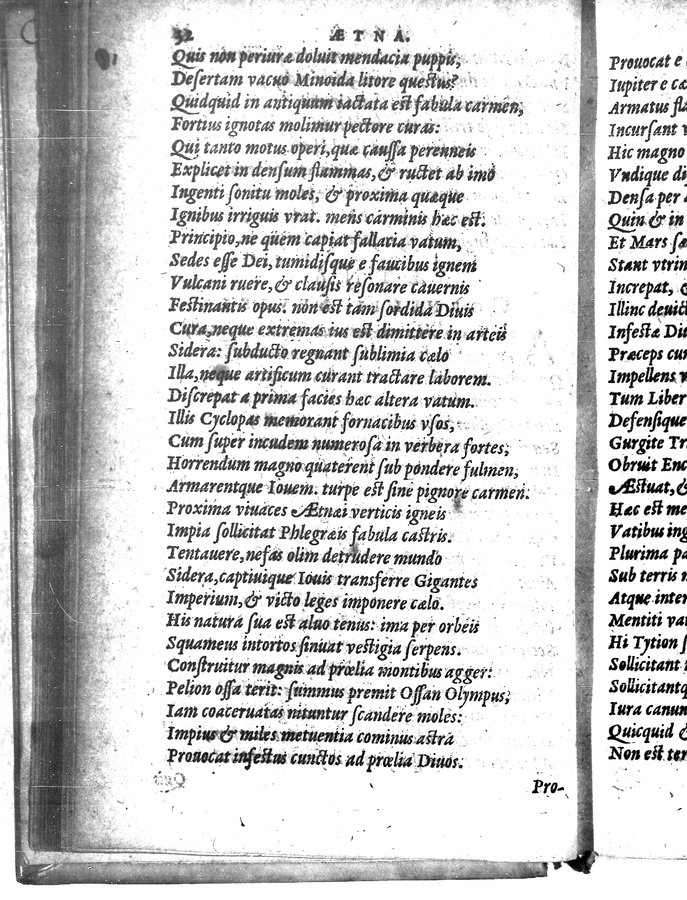 32 ÆTNA.
Quis non periuræ doluit mendacia puppis,
Desertam vacuo Minoida litore questus?
Quidquid in antiquum iactata est fabula carmen,
Fortius ignotas molimur pectore curas:
Qui tanto motus operi, quæ caussa perenneis
Explicet in densum flammas, & ructet ab imo
Ingenti sonitu moles, & proxima quæque
Ignibus irriguis vrat. mens carminis hæc est.
Principio, ne quem capiat fallacia vatum,
Sedes esse Dei, tumidisque e faucibus ignem
Vulcani ruere, & clausis resonare cauernis
Festinantis opus. non est tam sordida Diuis
Cura, neque extremas ius est dimittere in arteis
Sidera: subducto regnant sublimia cælo
Illa, neque artificum curant tractare laborem.
Discrepat a prima facies hæc altera vatum.
Illis Cyclopas memorant fornacibus vsos,
Cum super incudem numerosa in verbera fortes,
Horrendum magno quaterent sub pondere fulmen,
Armarentque Iouem. turpe est sine pignore carmen.
Proxima viuaces Ætnæi verticis igneis
Impia sollicitat Phlegræis fabula castris.
Tentauere, nefas olim detrudere mundo
Sidera, captiuique Iouis transferre Gigantes
Imperium, & victo leges imponere cælo.
His natura sua est aluo tenus: ima per orbeis
Squameus intortos sinuat vestigia serpens.
Construitur magnis ad prœlia montibus agger:
Pelion ossa terit: summus premit Ossan Olympus,
Iam coaceruatas nituntur scandere moles:
Impius & miles metuentia cominus astra
Prouocat infestus cunctos ad prœlia Diuos.
Pro-
Prouocat e
Iupiter e cæ
Armatus fla
Incursant v
Hic magno
Vndique di
Densa per
Quin & in
Et Mars sæ
Stant vtrin
Increpat, &
Illinc deuict
Infestæ Diu
Præceps cur
Impellens
Tum Liber
Defensique
Gurgite Tr
Obruit Enc
Æstuat, &
Hæc est me
Vatibus ing
Plurima pa
Sub terris n
Atque inter
Mentiti vat
Hi Tytion
Sollicitant
Sollicitantq
Iura canun
Quicquid
Non est ter